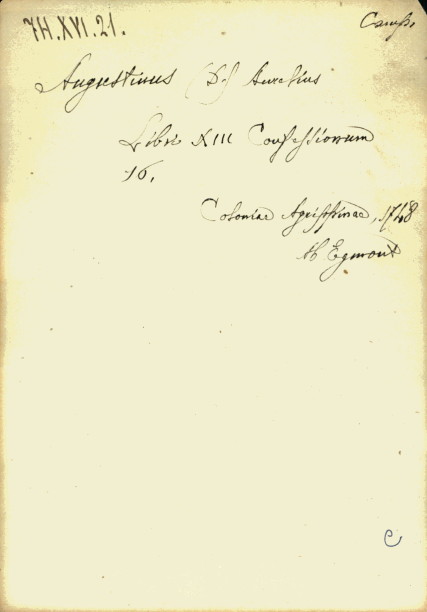 7H.XVI.21.
Augustinus (D.) Aurelius
Libri XIII Confessionum
16.
Coloniae Agrippinae, 1748
Egmont
C